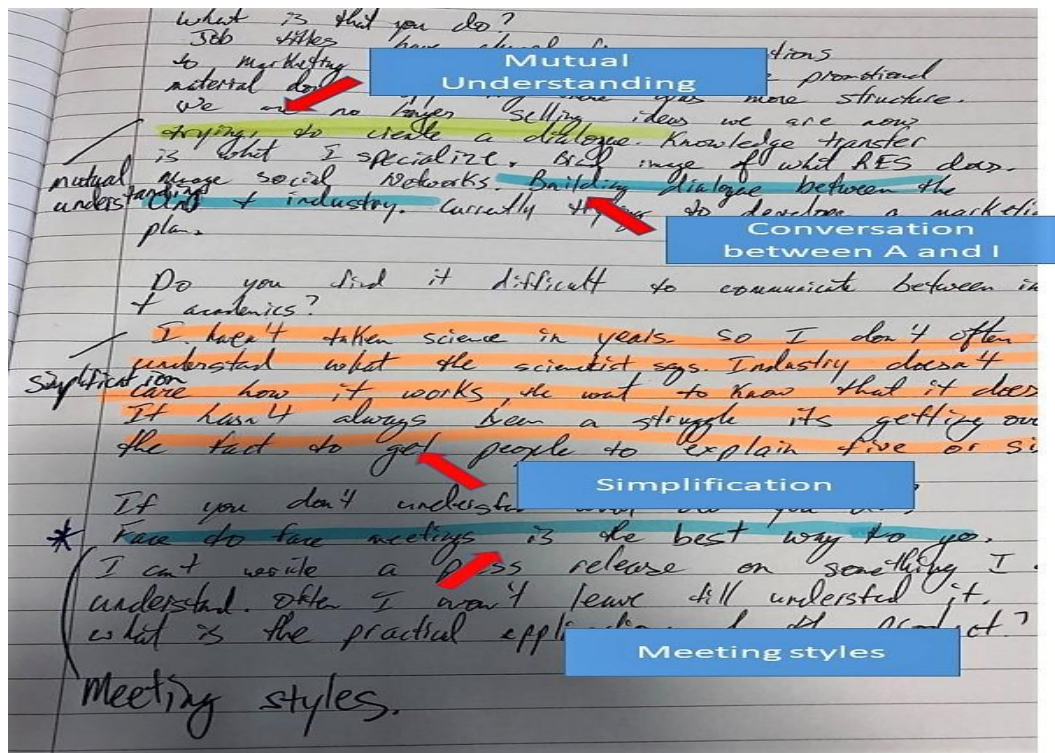 what is that you do?
Job titles have
to marketing promotional
material more structure.
We are no longer selling ideas we are now
trying to create a dialogue. Knowledge transfer
is what I specialize. image of what RES does.
mutual social networks. Building dialogue between the
understanding + industry. Currently trying to develop a marketing
plan.
Mutual
Understanding
Conversation
between A and I
Do you find it difficult to communicate between in
+ academics?
I haven't taken science in years. So I don't often
understand what the scientist says. Industry doesn't
simplification
care how it works, want to know that it does
It hasn't always been a struggle its getting over
the fact to get people to explain five or si
Simplification
If you don't you
* Face to face meetings is the best way to go.
I can't write a press release on something I
understand. Often I won't leave till understsd it.
what is the practical
Meeting styles
Meeting styles.